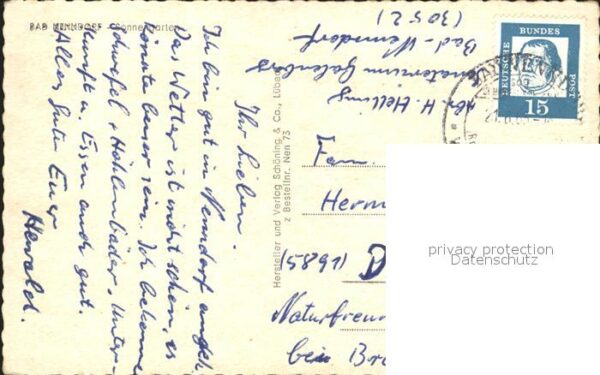 BAD NENNDORF
Ihr Lieben.
Ich bin gut in Nenndorf angek.
Das Wetter ist nicht schön, es
könnte besser sein. Ich bekomme
Schwefel + Kohlenbäder. Unter-
kunft u. Essen auch gut.
Alles Gute Euer
Hersteller und Verlag Schöning & Co., Lübeck
Bestellnr. Nen 73
Abs. H. Helling
Sanatorium
Bad-Nenndorf
(3052)
DEUTSCHE BUNDES POST
15
Fam.
Herm
(5891)
Naturfreun
bei Br
privacy protection
Datenschutz